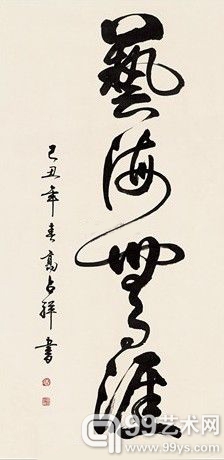 藝海無涯
己丑年春高占祥書
99艺术网
www.99ys.com